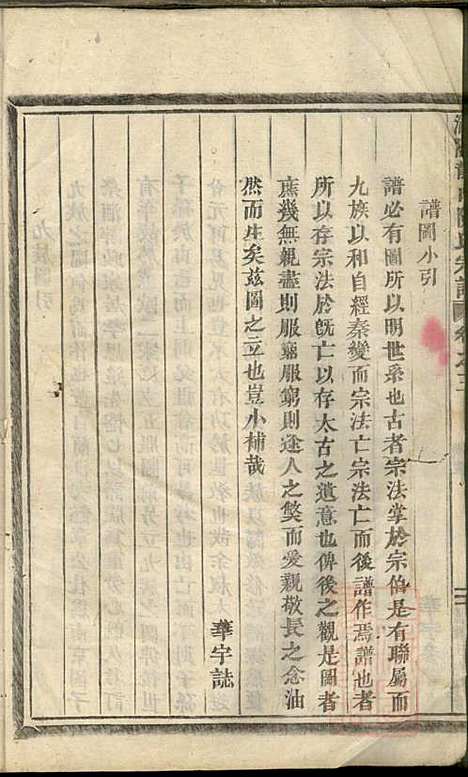 譜圖小引
譜必有圖所以明世系也古者宗法掌於宗伯是有聯屬而
九族以和自經秦變而宗法亡宗法亡而後譜作焉譜也者
所以存宗法於旣亡以存太古之遺意也俾後之觀是圖者
庶幾無親盡則服竆服竆則途人之獘而愛親敬長之念油
然而生矣茲圖之立也豈小補哉
華宇誌